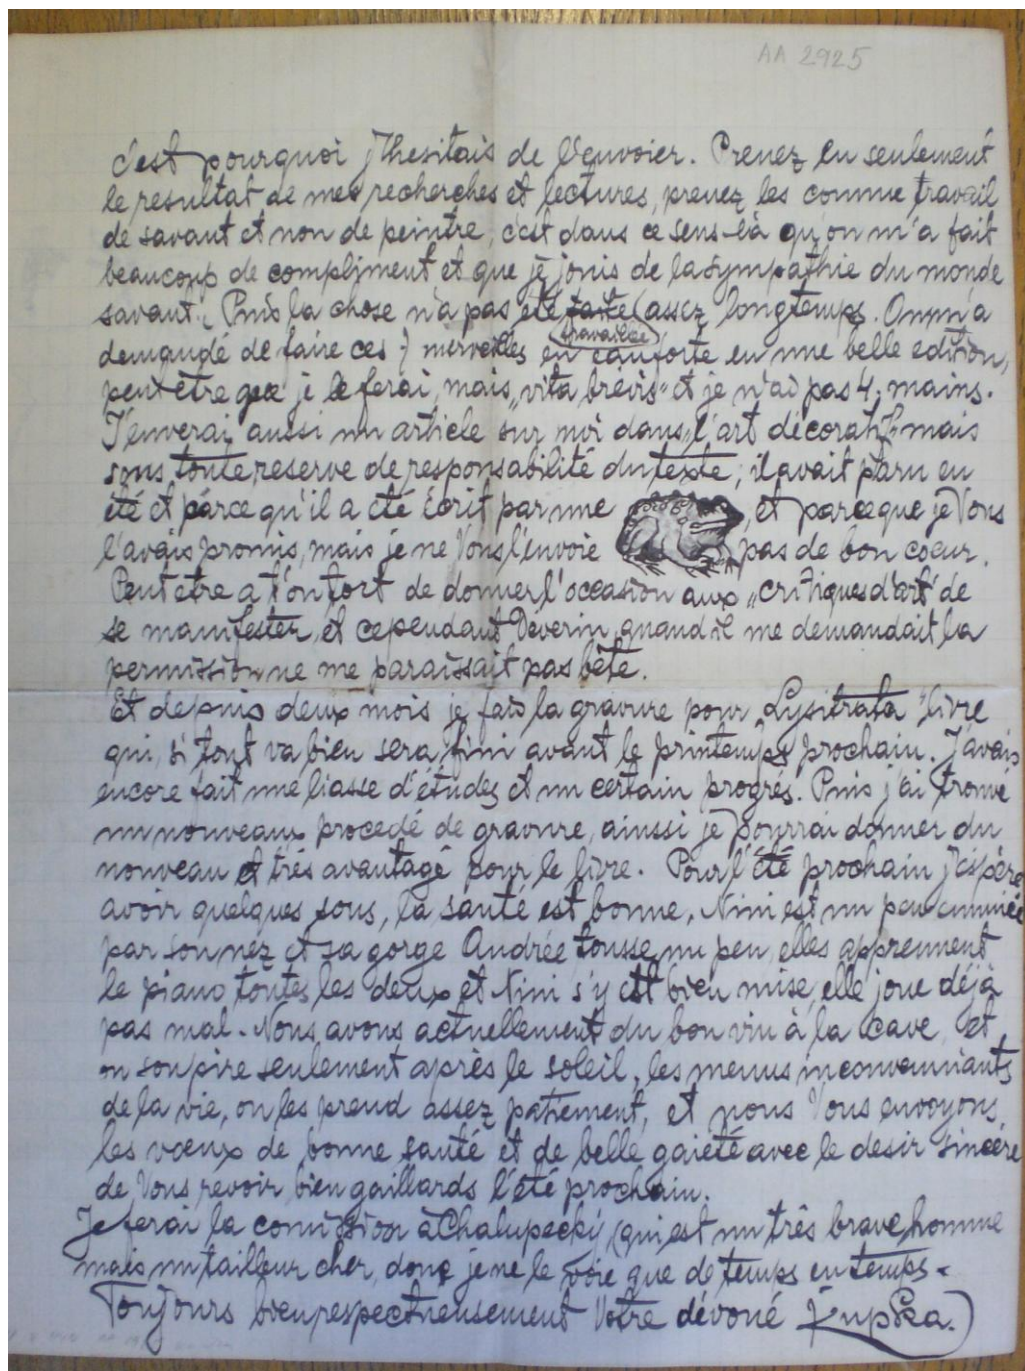 AA 2925
c'est pourquoi j'hesitais de l'envoier. Prenez en seulement
le resultat de mes recherches et lectures, prenez les comme travail
de savant et non de peintre, c'est dans ce sens-là qu'on m'a fait
beaucoup de compliment et que je jouis de la sympathie du monde
savant. Puis la chose n'a pas été faite (assez longtemps. On m'a
travaillée
demandé de faire ces 7 merveilles en eauforte en une belle edition,
peut être que je le ferai, mais „vita brevis" et je n'ai pas 4. mains.
J'enverai aussi un article sur moi dans „l'art décoratif" mais
sous toute reserve de responsabilité du texte; il avait paru en
été et parce qu'il a été écrit par une , et parceque je Vous
l'avais promis, mais je ne Vous l'envoie pas de bon coeur.
Peut etre a t'on tort de donner l'occasion aux „critiques d'art" de
se manifester, et cependant Deverin quand il me demandait la
permission ne me paraissait pas bête.
Et depuis deux mois je fais la gravure pour „Lysitrata" livre
qui, si tout va bien sera fini avant le printemps prochain. J'avais
encore fait une liasse d'études et un certain progrés. Puis j'ai trouvé
un nouveaux procedé de gravure, ainssi je pourrai donner du
nouveau et trés avantagé pour le livre. Pour l'été prochain j'éspère
avoir quelques sous, la santé est bonne, Nini est un peu ennuiée
par son nez et sa gorge Andrée tousse un peu, elles apprennent
le piano toutes les deux et Nini s'y est bien mise, elle joue déjà
pas mal. Nous avons actuellement du bon vin à la cave, et
on soupire seulement après le soleil, les menus inconvenniants
de la vie, on les prend assez patiement, et nous Vous envoyons
les vœux de bonne santé et de belle gaieté avec le desir sincère
de Vous revoir bien gaillards l'été prochain.
Je ferai la comission à Chalupecký (qui est un très brave homme
mais un tailleur cher, donc je ne le voie que de temps en temps.
Toujours bien respectueusement Votre dévoué Kupka.)